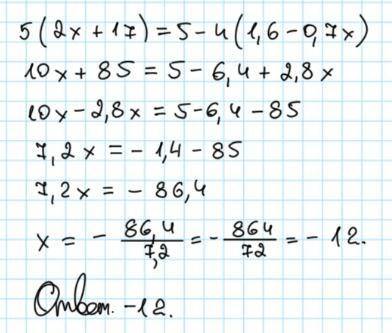 5(2x+17)=5-4(1,6-0,7x)
10x+85=5-6,4+2,8x
10x-2,8x=5-6,4-85
7,2x=-1,4-85
7,2x=-86,4
x=-86,4/7,2=-864/72=-12.
Ответ. -12.